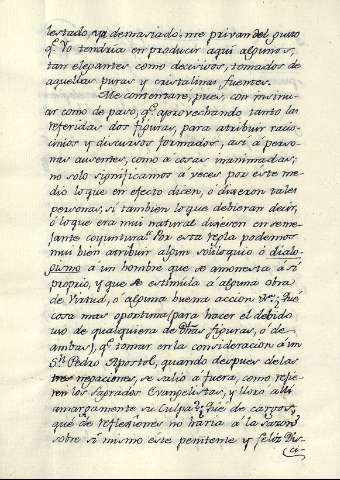 lestado, ya demasiado, me privan del gusto
q.e Yo tendria en producir aqui algunos,
tan elegantes como decisivos, tomados de
aquellas puras y cristalinas fuentes.
Me contentaré, pues, con insinu-
ar como de paso, q.e aprovechando tanto las
referidas dos figuras, para atribuir racio-
cinios y discursos formados, asi á perso-
nas ausentes, como a cosas inanimadas;
no solo significamos a veces por este me-
dio lo que en efecto dicen, ó dixeron tales
personas, si tambien lo que debieran decir,
ó lo que era mui natural dixesen en seme-
jante coyuntura. Por esta regla podemos
mui bien atribuir algun soliloquio ó dialo-
gismo a un hombre que se amonesta a sí
proprio, y que se estimúla á alguna obra
de Virtud, ó alguna buena accion Qué
cosa mas oportuna (para hacer el debido
uso de qualquiera de dhas figuras, ó de
ambas), q.e tomar en la consideracion á un
S.n Pedro Apostol, quando despues de las
tres negaciones, se salió á fuera, como refie-
ren los sagrados Evangelistas, y lloró alli
amargamente su culpa? ¿Qué de cargos,
que de reflexiones no haria á la sazon
sobre sí mismo este penitente y feliz Dis-
ci-